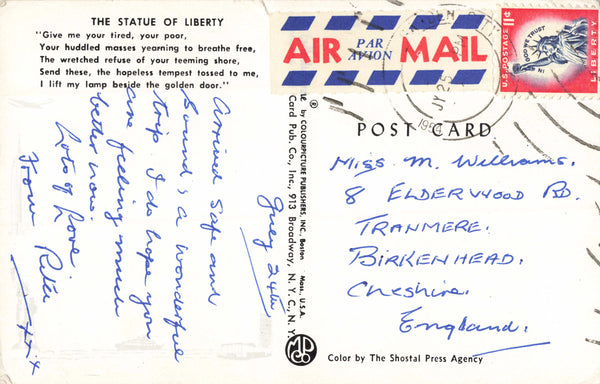 THE STATUE OF LIBERTY
"Give me your tired, your poor,
Your huddled masses yearning to breathe free,
The wretched refuse of your teeming shore,
Send these, the hopeless tempest tossed to me,
I lift my lamp beside the golden door."
July 24th
Arrived safe and
Sound & a wonderful
trip. I do hope you
are feeling much
better now.
Lots of Love.
From Rita
xxxx
PAR
AIR AVION MAIL
U.S. POSTAGE 11¢
IN GOD WE TRUST
LIBERTY
JY 25
195
by COLOURPICTURE PUBLISHERS, INC., Boston Mass. U.S.A.
Card Pub. Co., Inc., 913 Broadway, N. Y. C., N. Y.
®
POST CARD
Miss. M. Williams.
8 ELDERWOOD RD.
TRANMERE.
BIRKENHEAD.
Cheshire.
England.
Color by The Shostal Press Agency